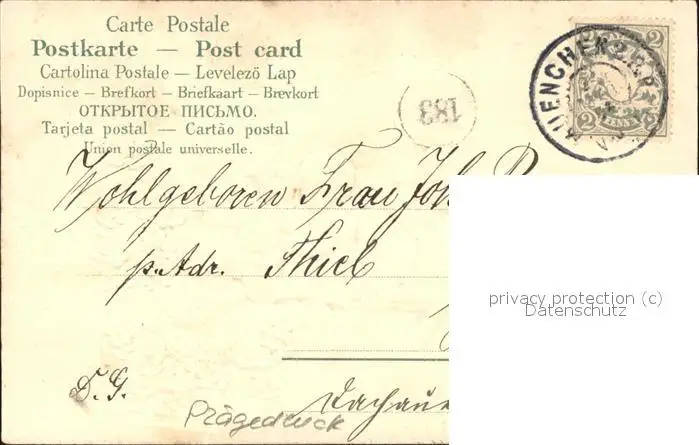 Carte Postale
Postkarte — Post card
Cartolina Postale — Levelező Lap
Dopisnice — Brefkort — Briefkaart — Brevkort
ОТКРЫТОЕ ПИСЬМО.
Tarjeta postal — Cartão postal
Union postale universelle.
183
MUENCHEN 2. B.P.
2 2
2 2
Wohlgeboren Frau Joh
p. Adr. Thiel
privacy protection (c)
Datenschutz
D. G.
Dachaue
Prägedruck